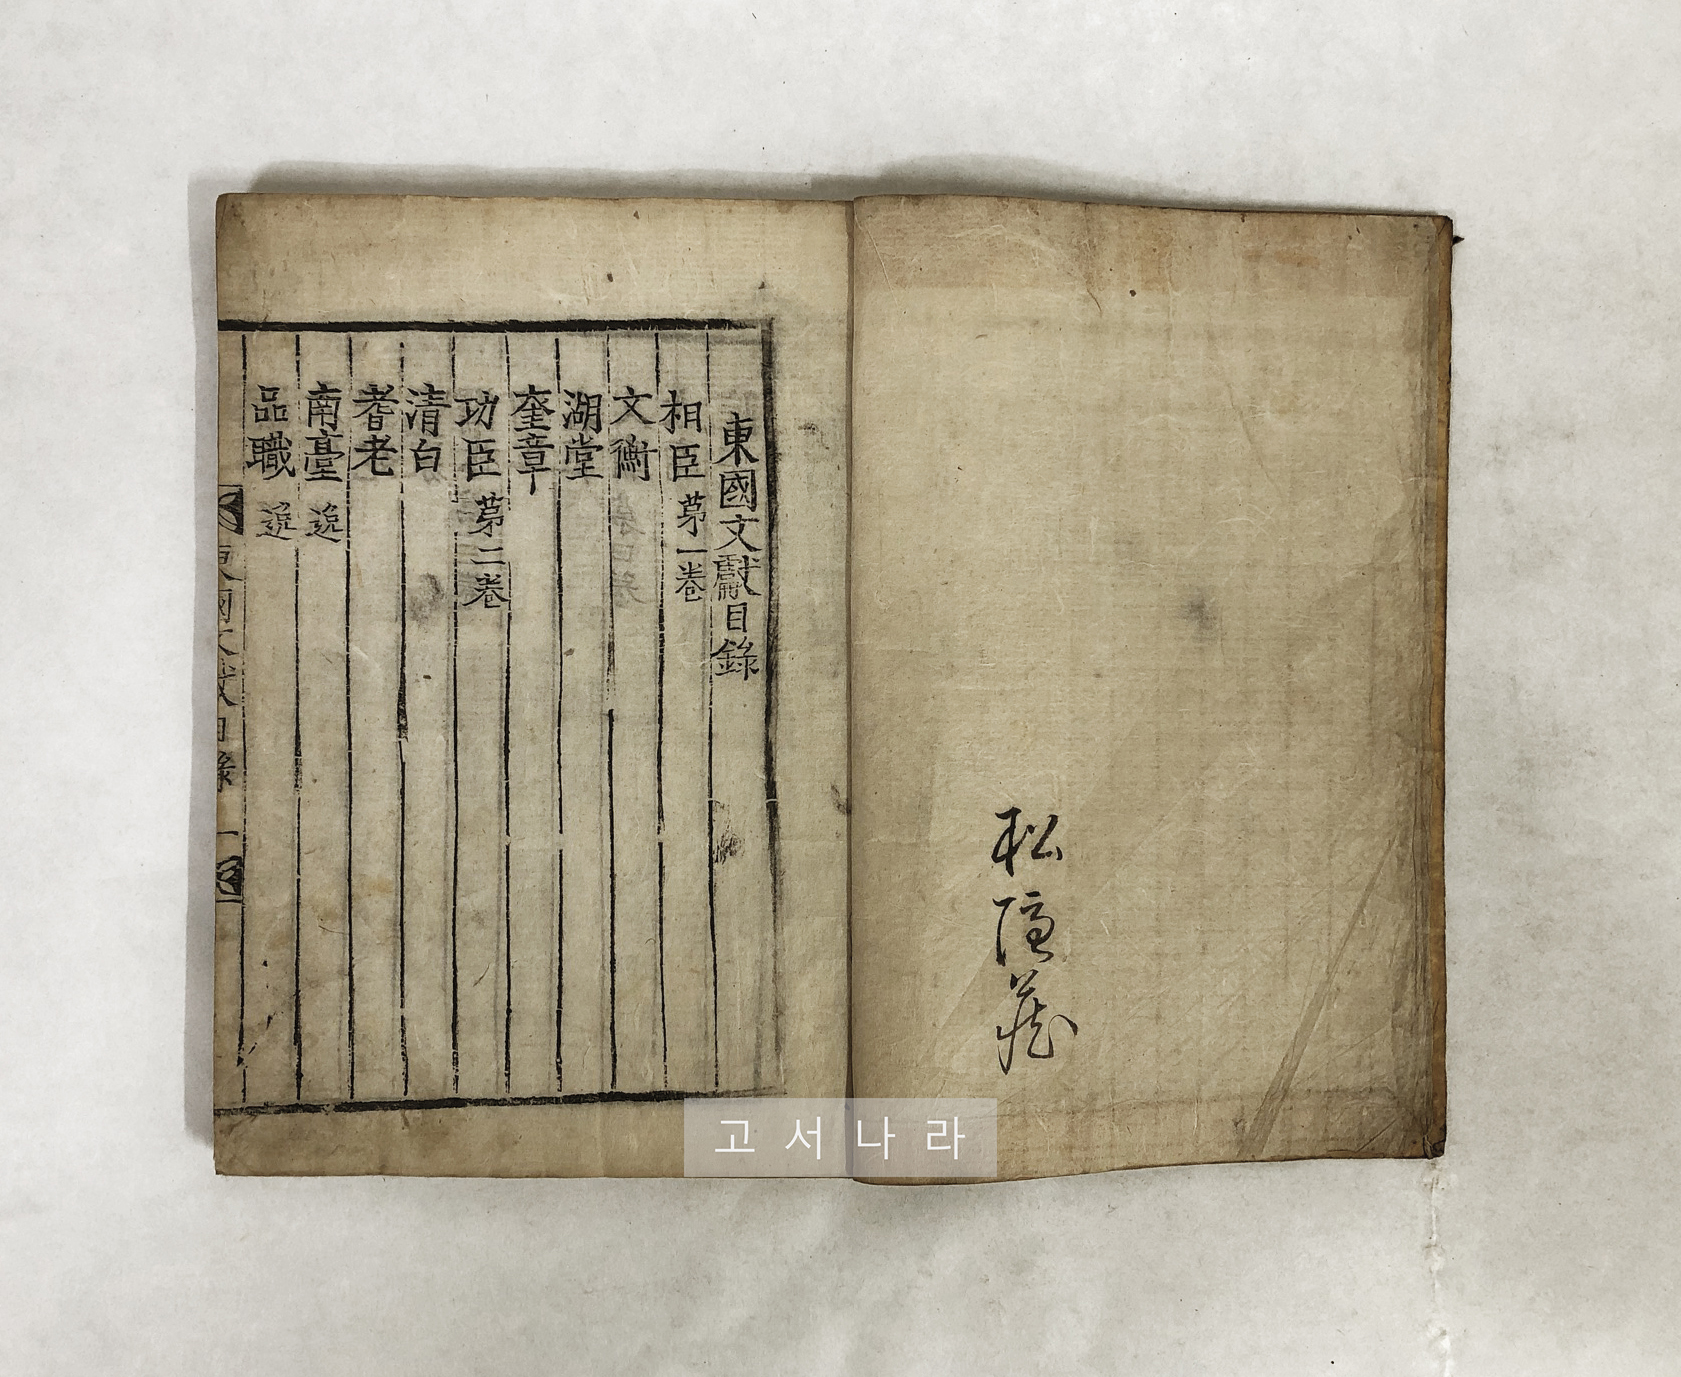 松隱藏
東國文獻目錄
相臣 苐一卷
文衡
湖堂
奎章
功臣 苐二卷
清白
耆老
南臺 逸
品職 逸
東國文獻目錄 一
고서나라